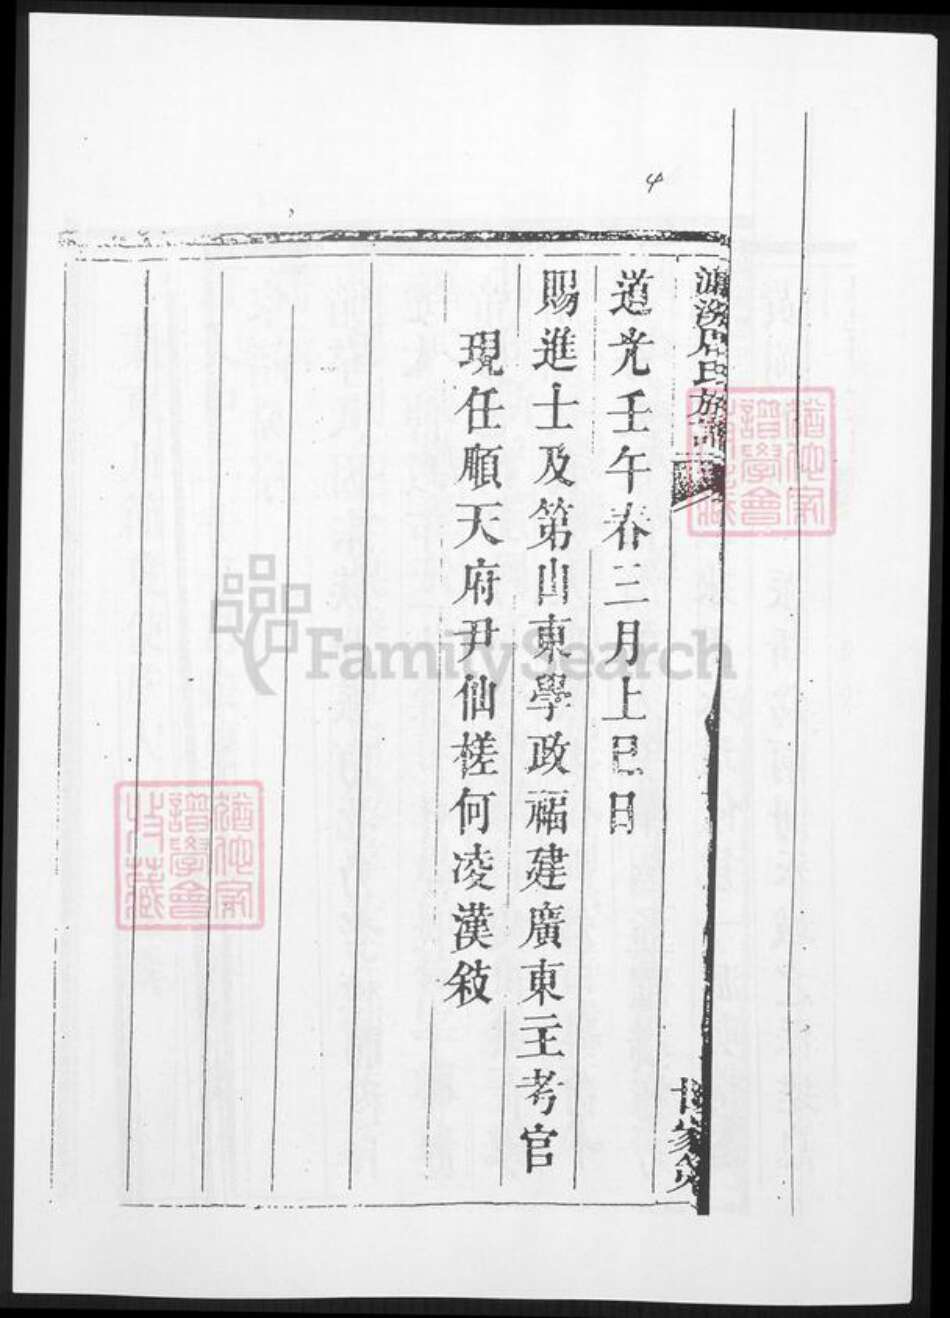 周氏族譜
道光壬午春三月上巳日
賜進士及第山東學政福建廣東主考官
現任順天府尹仙槎何凌漢敍
猶他家
譜學會
收藏
猶他家
譜學會
收藏
FamilySearch
4